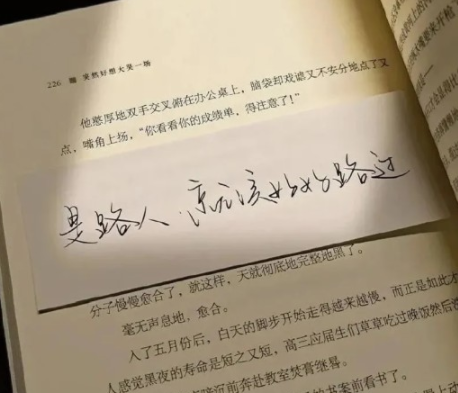 226 突然好想大哭一场
他憨厚地双手交叉俯在办公桌上，脑袋却戏谑又不安分地点了又
点，嘴角上扬，“你看看你的成绩单，得注意了！”
是路人，就应该好好路过
分子慢慢愈合了，就这样，天就彻底地完整地黑了。
毫无声息地，愈合。
入了五月份后，白天的脚步开始走得越来越慢，而正是如此才
人感觉黑夜的寿命是短之又短，高三应届生们草草吃过晚饭然后
前奔赴教室焚膏继晷。
的书案前看书了。